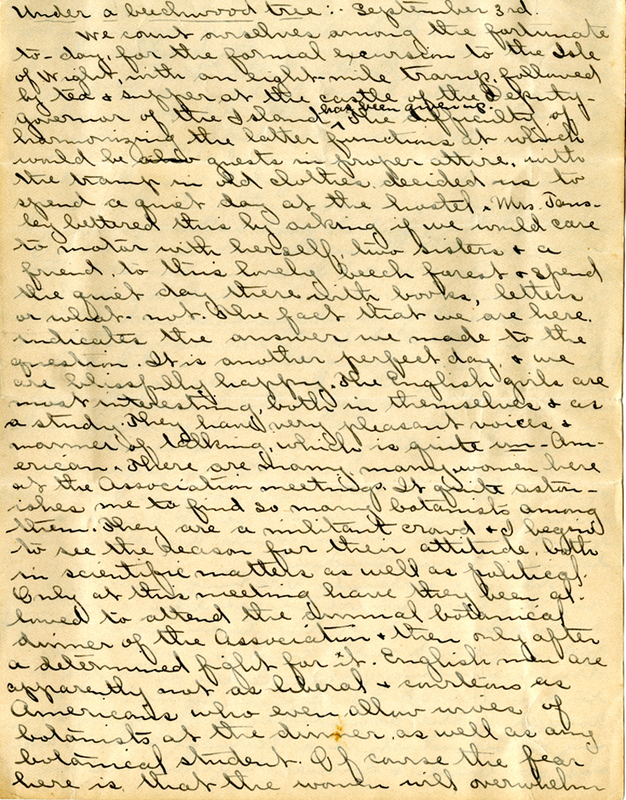 Under a beechwood tree:- September 3rd.
We count ourselves among the fortunate
to-day, for the formal excursion to the Isle
of Wight, with an eight-mile tramp, followed
by tea & supper at the castle of the Deputy-
governor of the Island has been given up. The difficulty of
harmonizing the latter functions at which
would be also guests in proper attire, with
the tramp in old clothes, decided us to
spend a quiet day at the hostel. Mrs. Tans-
ley bettered this by asking if we would care
to motor with herself, two sisters & a
friend, to this lovely beech forest & spend
the quiet day there with books, letters
or what-not. The fact that we are here,
indicates the answer we made to the
question. It is another perfect day & we
are blissfully happy. The English girls are
most interesting, both in themselves & as
a study. They have very pleasant voices &
manner of talking, which is quite un-Am-
erican. There are many, many women here
at the Association meetings. It quite aston-
ishes me to find so many botanists among
them. They are a militant crowd & I begin
to see the reason for their attitude, both
in scientific matters as well as political.
Only at this meeting have they been al-
lowed to attend the annual botanical
dinner of the Association & then only after
a determined fight for it. English men are
apparently not as liberal & courteous as
Americans who even allow wives of
botanists at the dinner, as well as any
botanical student. Of course the fear
here is that the women will overwhelm